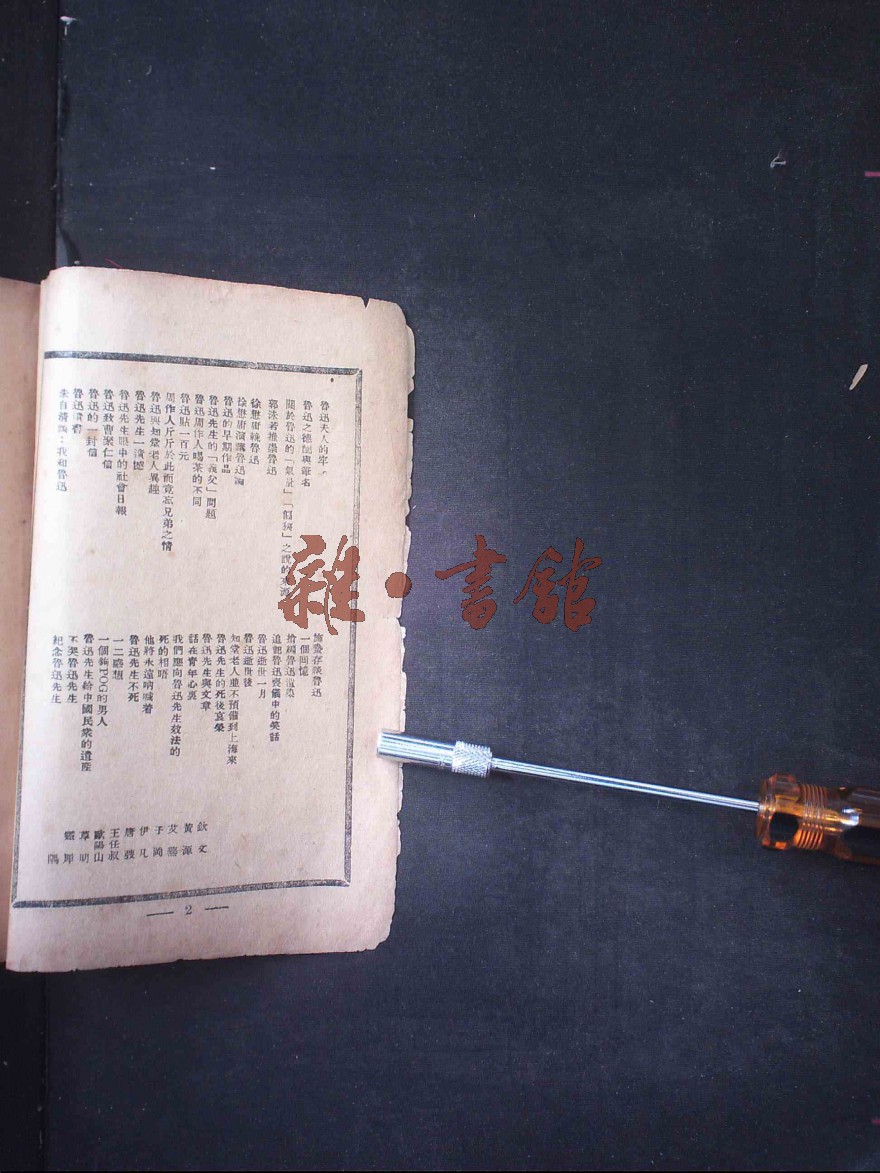 魯迅夫人的
魯迅之德配與簽名
關於魯迅的「氣量」「偏狹」之說的來源
郭沫若推崇魯迅
徐懋庸輓魯迅
徐懋庸演講魯迅
魯迅的早期作品
魯迅先生的「義父」問題
魯迅周作人喝茶的不同
魯迅貼一百元
周作人斤斤於此而竟忘兄弟之情
魯迅與知堂老人異趣
魯迅先生一遺憾
魯迅先生眼中的社會日報
魯迅致曹聚仁信
魯迅的一封信
魯迅讀書
朱自清談:我和魯迅
施蟄存談魯迅
一個回憶
搶購魯迅遺
追記魯迅喪儀中的笑話
魯迅逝世一月
魯迅逝世後
知堂老人並不預備到上海來
魯迅先生的死後哀榮
魯迅先生與文章
活在青年心裏 欽文
我們應向魯迅先生效法的 黃源
死的相唔 艾蕪
他將永遠吶喊着 子岡
魯迅先生不死 伊凡
一二感想 唐弢
一個夠FOG的男人 王任叔
魯迅先生給中國民衆的遺產 歐陽山
不哭魯迅先生 草明
紀念魯迅先生 鑑犀 隅
— 2 —
雜·書館